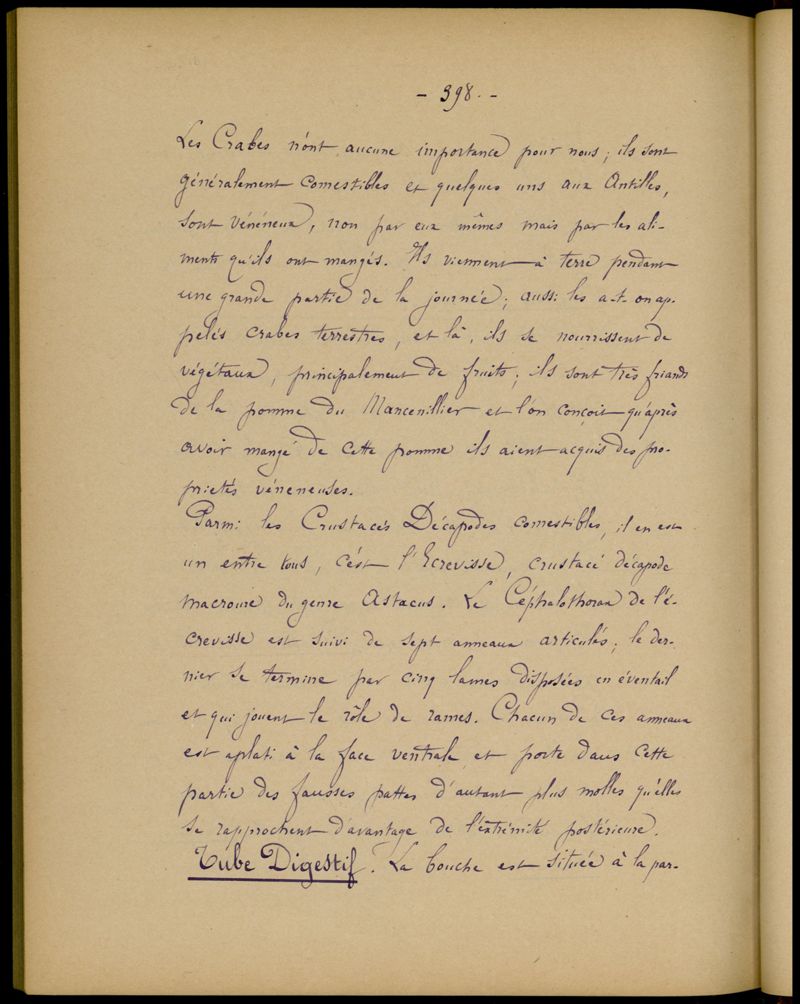 - 398. -
Les Crabes n'ont aucune importance pour nous ; ils sont
généralement comestibles et quelques uns aux Antilles,
sont vénéneux, non par eux mêmes mais par les ali-
ments qu'ils ont mangés. Ils viennent à terre pendant
une grande partie de la journée ; aussi les a-t-on ap-
pelés crabes terrestres, et là, ils se nourrissent de
végétaux, principalement de fruits ; ils sont très friands
de la pomme du Mancenillier et l'on conçoit qu'après
avoir mangé de cette pomme ils aient acquis des pro-
priétés vénéneuses.
Parmi les Crustacés Décapodes comestibles, il en est
un entre tous, c'est l'Ecrevisse, crustacé décapode
macroure du genre Astacus. Le Céphalothorax de l'é-
crevisse est suivi de sept anneaux articulés ; le der-
nier se termine par cinq lames disposées en éventail
et qui jouent le rôle de rames. Chacun de ces anneaux
est aplati à la face ventrale et porte dans cette
partie des fausses pattes d'autant plus molles qu'elles
se rapprochent d'avantage de l'extrémité postérieure.
Tube Digestif. La bouche est située à la par-